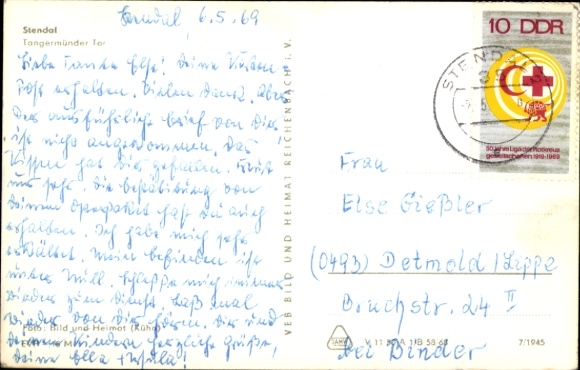 Stendal 6.5.69
Stendal
Tangermünder Tor
Liebe Tante Else! Deine Karten
Post erhalten. Vielen Dank. Aber
Der ausführliche brief von Dir
ist nicht angekommen. Das
Kissen hat Dir gefallen. Freut
uns sehr. Die bestätigung von
Deinem hast Du auch
erhalten. Ich habe mich sehr
erkältet. Mein befinden ist
unter Null. Schleppe mich immer
wieder zum Dienst. Laß mal
wieder von Dir hören. Dir und
Deinen Kindern herzliche Grüße,
Deine Ella + Ursula!
Foto: Bild und Heimat (Kühn)
VEB BILD UND HEIMAT REICHENBACH I. V.
10 DDR
50 Jahre Liga der Rotkreuz-
gesellschaften 1919-1969
STENDAL
Frau
Else Gießler
(0493) Detmold/Lippe
Bruchstr. 24 II
bei Binder
7/1945